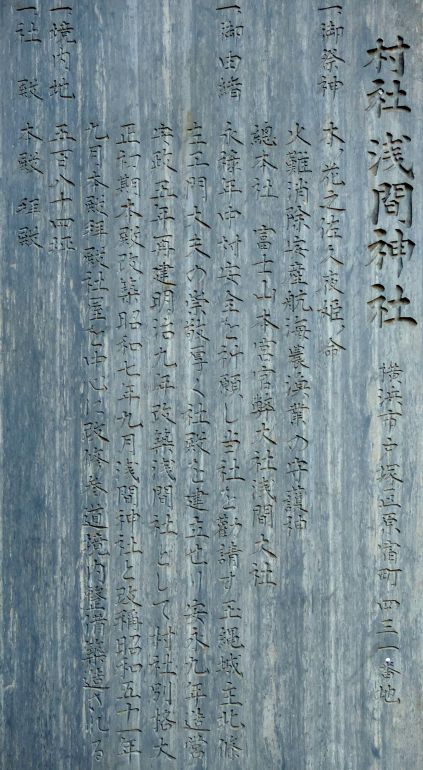 村社 浅間神社 横浜市戸塚区原宿町四三一番地
一御祭神 木ノ花之佐久夜姫ノ命
火難消除安産航海農漁業の守護神
總本社 富士山本宮官幣大社浅間大社
一御由緒 永禄年中村安全を祈願し当社を勧請す玉縄城主北條
左エ門大夫の崇敬厚く社殿を建立せり安永九年造営
安政五年再建明治九年改築浅間社として村社別格大
正初期本殿改築昭和七年九月浅間神社と改稱昭和五十一年
九月本殿拝殿社屋を中心に改修参道境内整備築造される
一境内地 五百八十四坪
一社 殿 本殿 拝殿